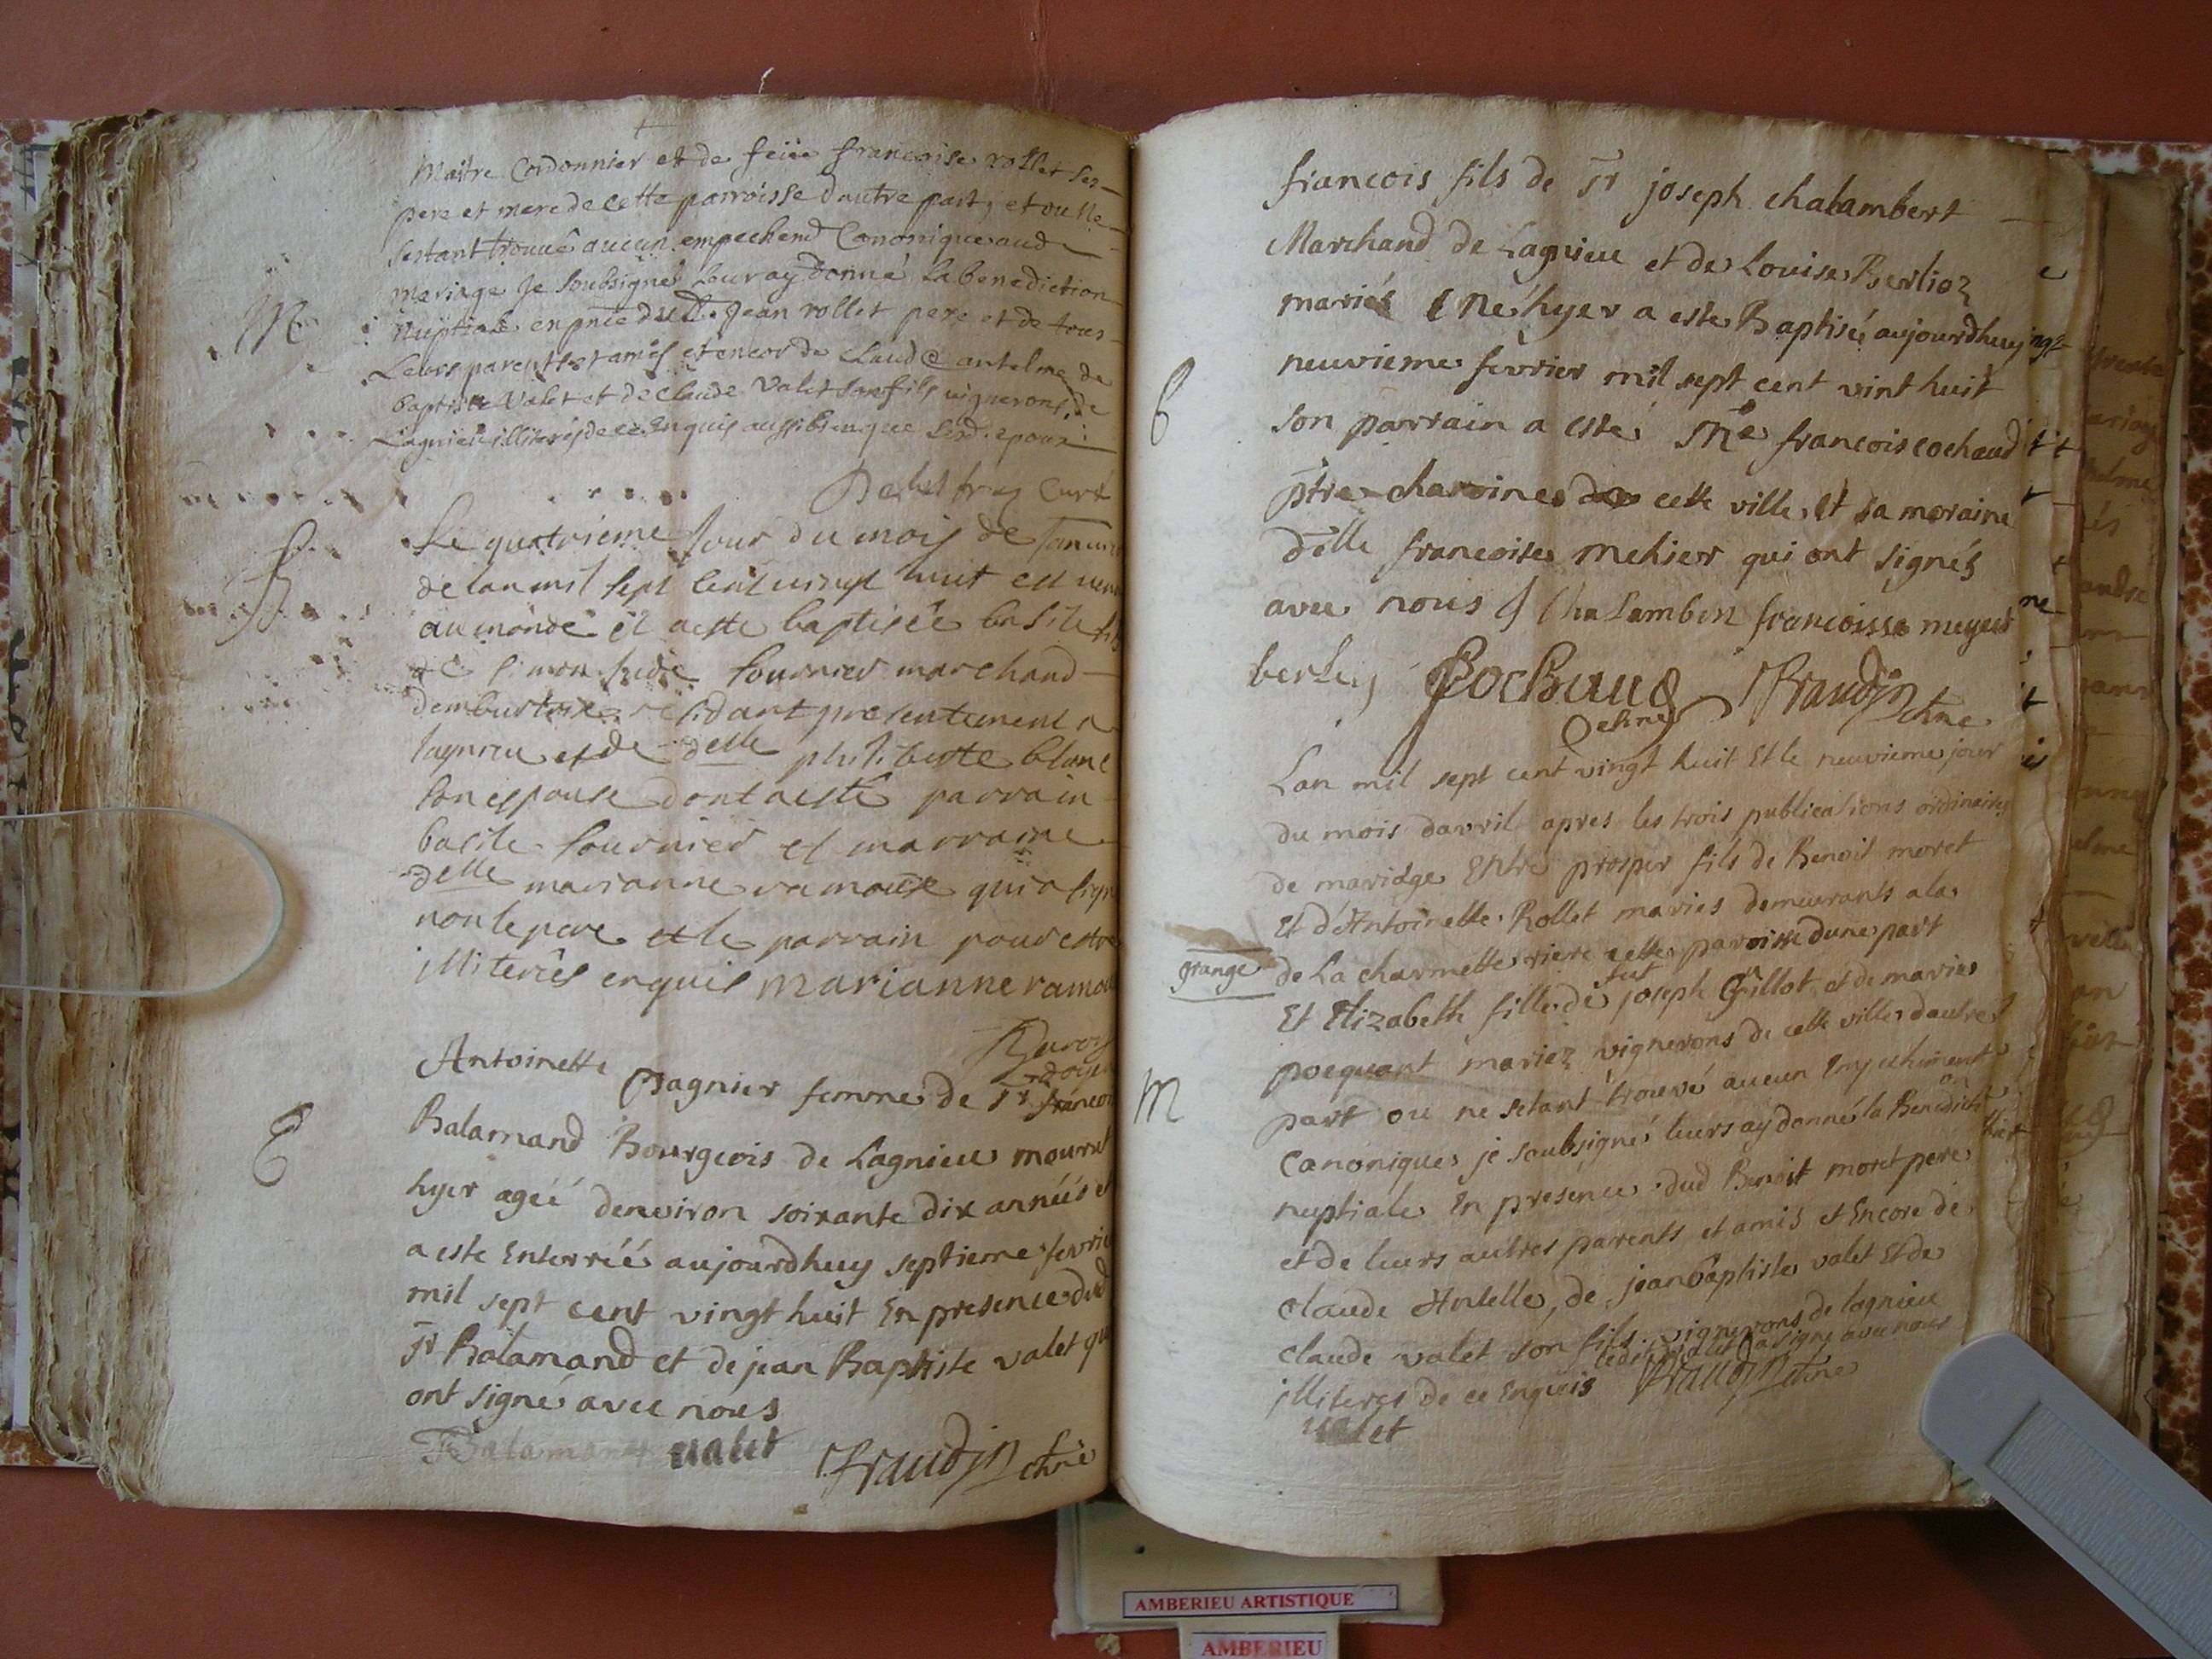 Maitre Cordonnier et de feüe francoise rollet ses
pere et mere de cette parroisse dautre part, et ou ne
sestant trouué aucun empechend Canonique aud
M
mariage Je soubsigné leur ay donné la benediction
nuptiale en pnce dud. Jean rollet pere et de tous
Leurs parents et amis et encor de Claude antelme de
baptiste Valet et de Claude Valet son fils uignerons de
Lagnieu illiterés de ce Enquis aussi bien que lesd. epoux
Curé
Le quatrieme Jour du mois de
de lan mil sept cent uingt huit est
au monde et a este baptisée basile
de simon fournier marchand
residant presentement a
lagnieu et de delle philiberte blanc
son espouse dont a esté parrain
basile fournier et marraine
delle marianne ramouse qui a
non le pere et le parrain pour estre
illiterés enquis marianne
Antoinette Pagnier femme de Sr
E
Balamand Bourgeois de Lagnieu mourut
hyer ageé denviron soixante dix années et
a este Enterréé aujourdhuy septieme
mil sept cent vingt huit En presence dud
Sr Balamand et de jean Baptiste valet
ont signé avec nous
Balamand ualet fraudin chne
francois fils de Sr joseph chalambert
Marchand de Lagnieu et de Louise Berlioz
mariés Né hyer a este Baptisé aujourdhuy
neuvieme fevrier mil sept cent vint huit
B
son parrain a esté Mre francois cochaud
ptre chanoine de cette ville et sa maraine
delle francoise mehier qui ont signés
avec nous
Cochaud fraudin chne
Lan mil sept cent vingt huit Et le neuvieme jour
du mois davril apres les trois publications ordinaires
de mariage Entre prosper fils de Benoit moret
Et d'Antoinette Rollet mariés demeurants a la
grange
de La charmette riere cette paroisse dune part
Et Elizabeth fille de fut joseph Grillot et de marie
pocquant mariez vignerons de cette ville dautre
M
part ou ne setant trouvé aucun Empechement
Canonique je soubsigné leurs ay donné la Benediction
nuptiale En presence dud Benoit moret pere
et de leurs autres parents et amis et Encore de
claude Antelle, de jean baptiste valet Et de
claude valet son fils vignerons de lagnieu
ledit valet a signé avec nous
illiterés de ce Enquis fraudin chne
ualet
AMBERIEU ARTISTIQUE
AMBERIEU